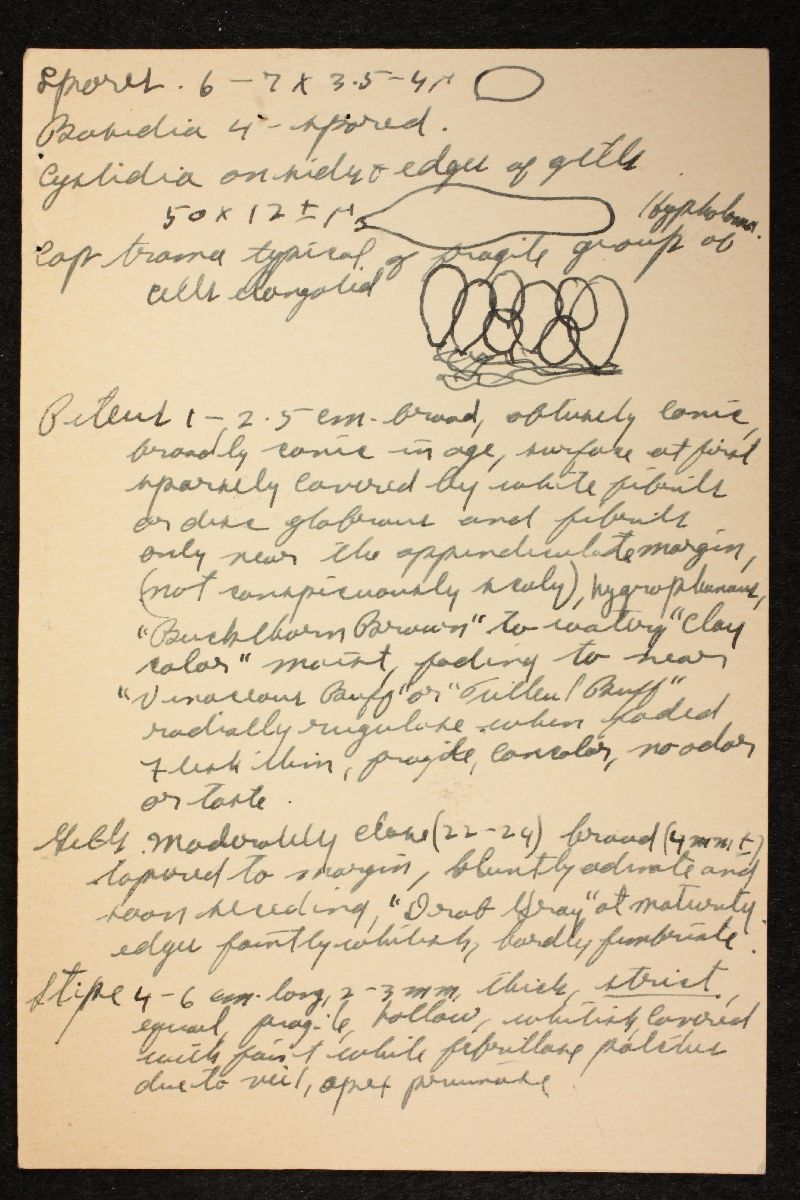 Spores. 6 – 7 X 3.5 – 4 µ
Basidia 4 - spored.
Cystidia on sides & edges of gills
50 x 12 ± µ
Hypholoma.
Cap trama typical of fragile group of
cells elongated
Pileus 1 – 2.5 cm. broad, obtusely conic,
broadly conic in age, surface at first
sparsely covered by white fibrils
or disc glabrous and fibrils
only near the appendiculate margin,
(not conspicuously scaly), hygrophanous,
"Buckthorn Brown" to watery "Clay
color" moist, fading to near
"Vinaceous Buff" or "Tilleul Buff"
radially rugulose when faded
Flesh thin, fragile, concolor, no odor
or taste.
Gills moderately close (22-24) broad (4 mm, ±)
tapered to margin, bluntly adnate and
soon seceding, "Drab Gray" at maturity.
edges faintly whitish, hardly fimbriate.
Stipe 4 – 6 cm. long, 2 – 3 mm, thick, strict,
equal, fragile, hollow, whitish, covered
with faint white fibrillose patches
due to veil, apex pruinose